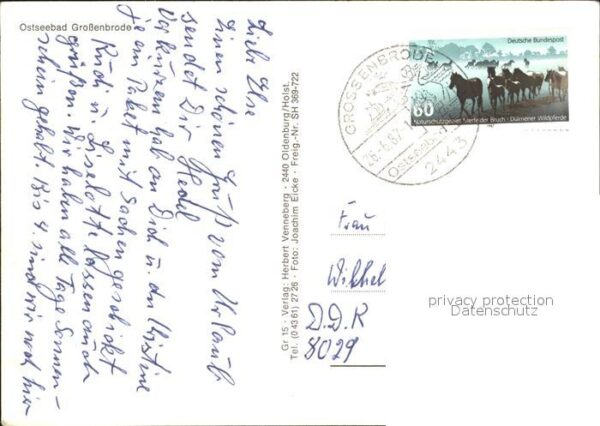 Ostseebad Großenbrode
Liebe Else
Einen schönen Gruß vom Urlaub
sendet Dir Hedel
Vor kurzem hab an Dich u. an Christine
je ein Paket mit Sachen geschickt
Rudi u. Liselotte lassen auch
grüßen. Wir haben alle Tage Sonnen-
schein gehabt. Bis 4. sind wir noch hier
Gr 15 · Verlag: Herbert Venneberg · 2440 Oldenburg/Holst.
Tel. (0 43 61) 27 26 · Foto: Joachim Eicke · Freig.-Nr. SH 369-722
GROSSENBRODE
26.-6.87
Ostseebad
2443
Deutsche Bundespost
60
Naturschutzgebiet Merfelder Bruch · Dülmener Wildpferde
Frau
D.D.R
8029
privacy protection
Datenschutz